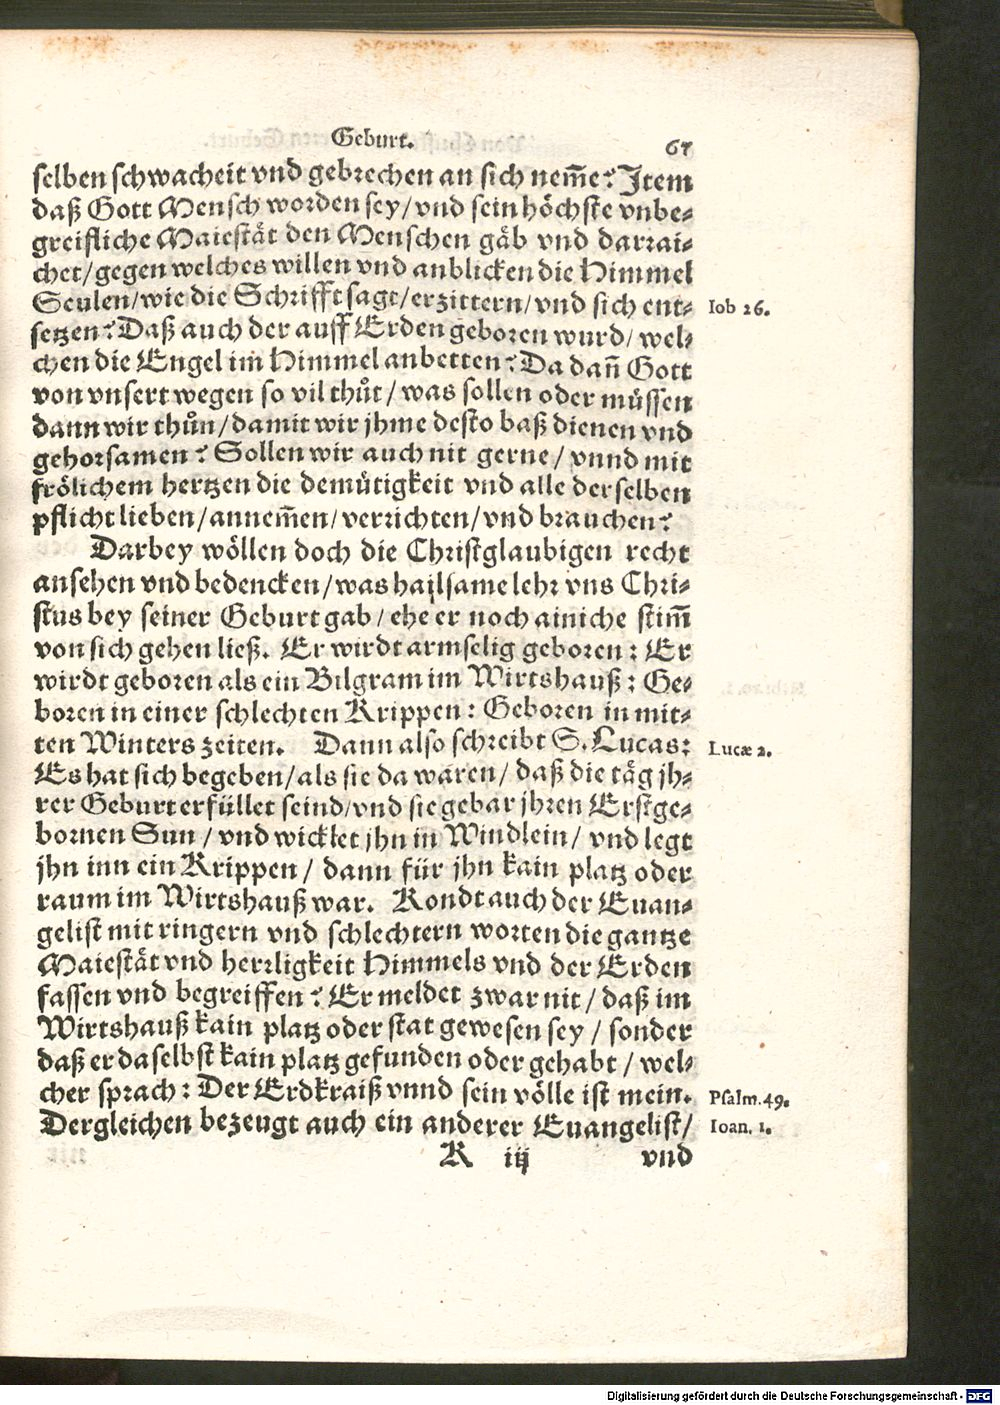 Geburt. 61
selben schwacheit vnd gebrechen an sich nem̃e? Item
daß Gott Mensch worden sey/ vnd sein höchste vnbe-
greifliche Maiestät den Menschen gäb vnd darrai-
chet/ gegen welches willen vnd anblicken die Himmel
Seulen/ wie die Schrifft sagt/ erzittern/ vnd sich ent- Iob 26.
setzen? Daß auch der auff Erden geboren wurd/ wel-
chen die Engel im Himmel anbetten? Da dañ Gott
von vnsert wegen so vil thůt/ was sollen oder müssen
dann wir thůn/ damit wir jhme desto baß dienen vnd
gehorsamen? Sollen wir auch nit gerne/ vnnd mit
frölichem hertzen die demütigkeit vnd alle derselben
pflicht lieben/ annem̃en/ verrichten/ vnd brauchen?
Darbey wöllen doch die Christglaubigen recht
ansehen vnd bedencken/ was hailsame lehr vns Chri-
stus bey seiner Geburt gab/ ehe er noch ainiche stim̃
von sich gehen ließ. Er wirdt armselig geboren: Er
wirdt geboren als ein Bilgram im Wirtshauß: Ge-
boren in einer schlechten Krippen: Geboren in mit-
ten Winters zeiten. Dann also schreibt S. Lucas: Lucæ 2.
Es hat sich begeben/ als sie da waren/ daß die täg jh-
rer Geburt erfüllet seind/ vnd sie gebar jhren Erstge-
bornen Sun/ vnd wicklet jhn in Windlein/ vnd legt
jhn inn ein Krippen/ dann für jhn kain platz oder
raum im Wirtshauß war. Kondt auch der Euan-
gelist mit ringern vnd schlechtern worten die gantze
Maiestät vnd herrligkeit Himmels vnd der Erden
fassen vnd begreiffen? Er meldet zwar nit/ daß im
Wirtshauß kain platz oder stat gewesen sey/ sonder
daß er daselbst kain platz gefunden oder gehabt/ wel-
cher sprach: Der Erdkraiß vnnd sein völle ist mein. Psalm. 49.
Dergleichen bezeugt auch ein anderer Euangelist/ Ioan. 1.
K iij vnd
Digitalisierung gefördert durch die Deutsche Forschungsgemeinschaft - DFG